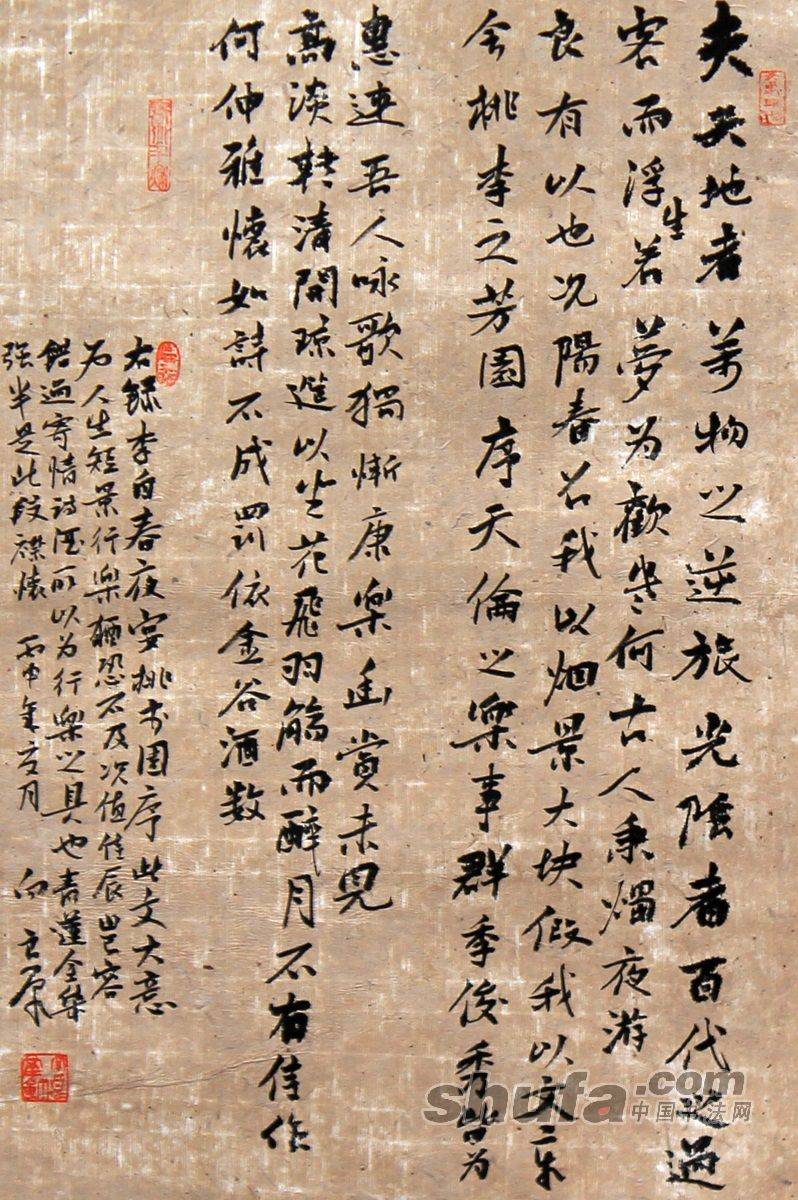 夫天地者萬物之逆旅光陰者百代之過
客而浮生若夢为歡幾何古人秉燭夜游
良有以也况陽春召我以烟景大块假我以文二年
会桃李之芳園序天倫之樂事群季俊秀皆为
惠連吾人咏歌獨慚康樂幽賞未見
高淡轉清開琼筵以坐花飛羽觴而醉月不有佳作
何伸雅懷如詩不成罰依金谷酒数
右錄李白春夜宴桃李園序此文大意
为人生短景行樂輒恐不及次值佳辰岂容
錯過寄情诗酒所以为行樂之具也青蓮全集
强半是此段襟懷 丙申年 月 向
shufa.com
中国书法网